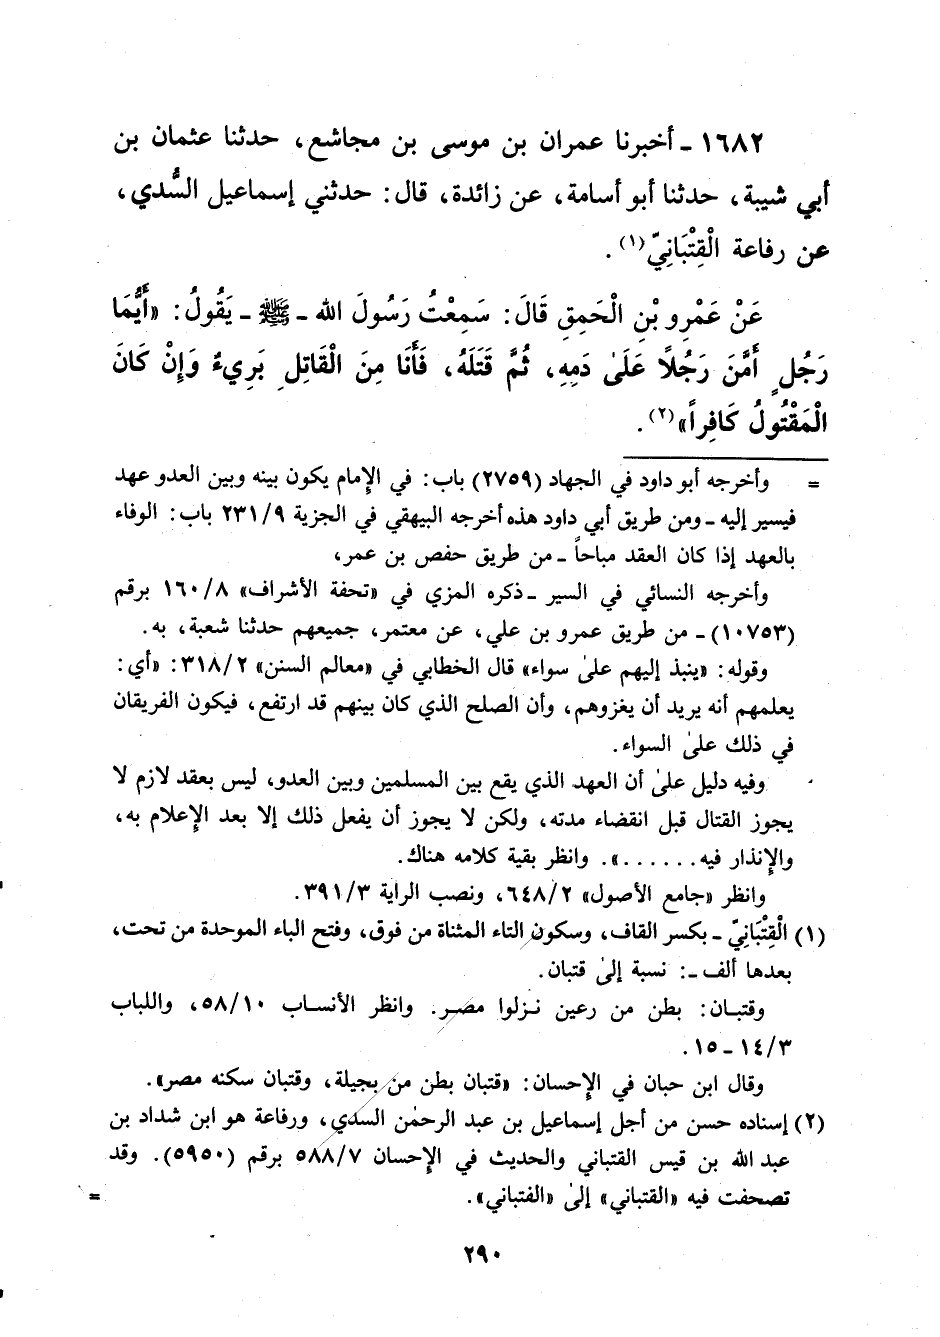 ١٦٨٢ ـ أخبرنا عمران بن موسى بن مجاشع، حدثنا عثمان بن
أبي شيبة، حدثنا أبو أسامة، عن زائدة، قال: حدثني إسماعيل السُّدي،
عن رفاعة الْقِتْبَانِيّ(١).
عَنْ عَمْرِو بْنِ الْحَمِقِ قَالَ: سَمِعْتُ رَسُولَ الله ـ ﷺ ـ يَقُولُ: «أَيُّمَا
رَجُلٍ أَمَّنَ رَجُلاً عَلَىٰ دَمِهِ، ثُمَّ قَتَلَهُ، فَأَنَا مِنَ الْقَاتِلِ بَرِيءٌ وَإِنْ كَانَ
الْمَقْتُولُ كَافِراً»(٢).
= وأخرجه أبو داود في الجهاد (٢٧٥٩) باب: في الإمام يكون بينه وبين العدو عهد
فيسير إليه ـ ومن طريق أبي داود هذه أخرجه البيهقي في الجزية ٢٣١/٩ باب: الوفاء
بالعهد إذا كان العقد مباحاً ـ من طريق حفص بن عمر،
وأخرجه النسائي في السير ـ ذكره المزي في «تحفة الأشراف» ١٦٠/٨ برقم
(١٠٧٥٣) ـ من طريق عمرو بن علي، عن معتمر، جميعهم حدثنا شعبة، به.
وقوله: «ينبذ إليهم علىٰ سواء» قال الخطابي في «معالم السنن» ٣١٨/٢: «أي:
يعلمهم أنه يريد أن يغزوهم، وأن الصلح الذي كان بينهم قد ارتفع، فيكون الفريقان
في ذلك علىٰ السواء.
وفيه دليل علىٰ أن العهد الذي يقع بين المسلمين وبين العدو، ليس بعقد لازم لا
يجوز القتال قبل انقضاء مدته، ولكن لا يجوز أن يفعل ذلك إلا بعد الإعلام به،
والإنذار فيه.......». وانظر بقية كلامه هناك.
وانظر «جامع الأصول» ٦٤٨/٢، ونصب الراية ٣٩١/٣.
(١) الْقِتْبَانِيّ ـ بكسر القاف، وسكون التاء المثناة من فوق، وفتح الباء الموحدة من تحت،
بعدها ألف ـ: نسبة إلىٰ قتبان.
وقتبـان: بطن من رعين نـزلوا مصـر. وانظر الأنسـاب ٥٨/١٠، واللباب
١٤/٣ ـ ١٥.
وقال ابن حبان في الإحسان: «قتبان بطن من بجيلة، وقتبان سكنه مصر».
(٢) إسناده حسن من أجل إسماعيل بن عبد الرحمٰن السدي، ورفاعة هو ابن شداد بن
عبد الله بن قيس القتباني والحديث في الإحسان ٥٨٨/٧ برقم (٥٩٥٠). وقد
تصحفت فيه «القتباني» إلىٰ «الفتباني». =
٢٩٠